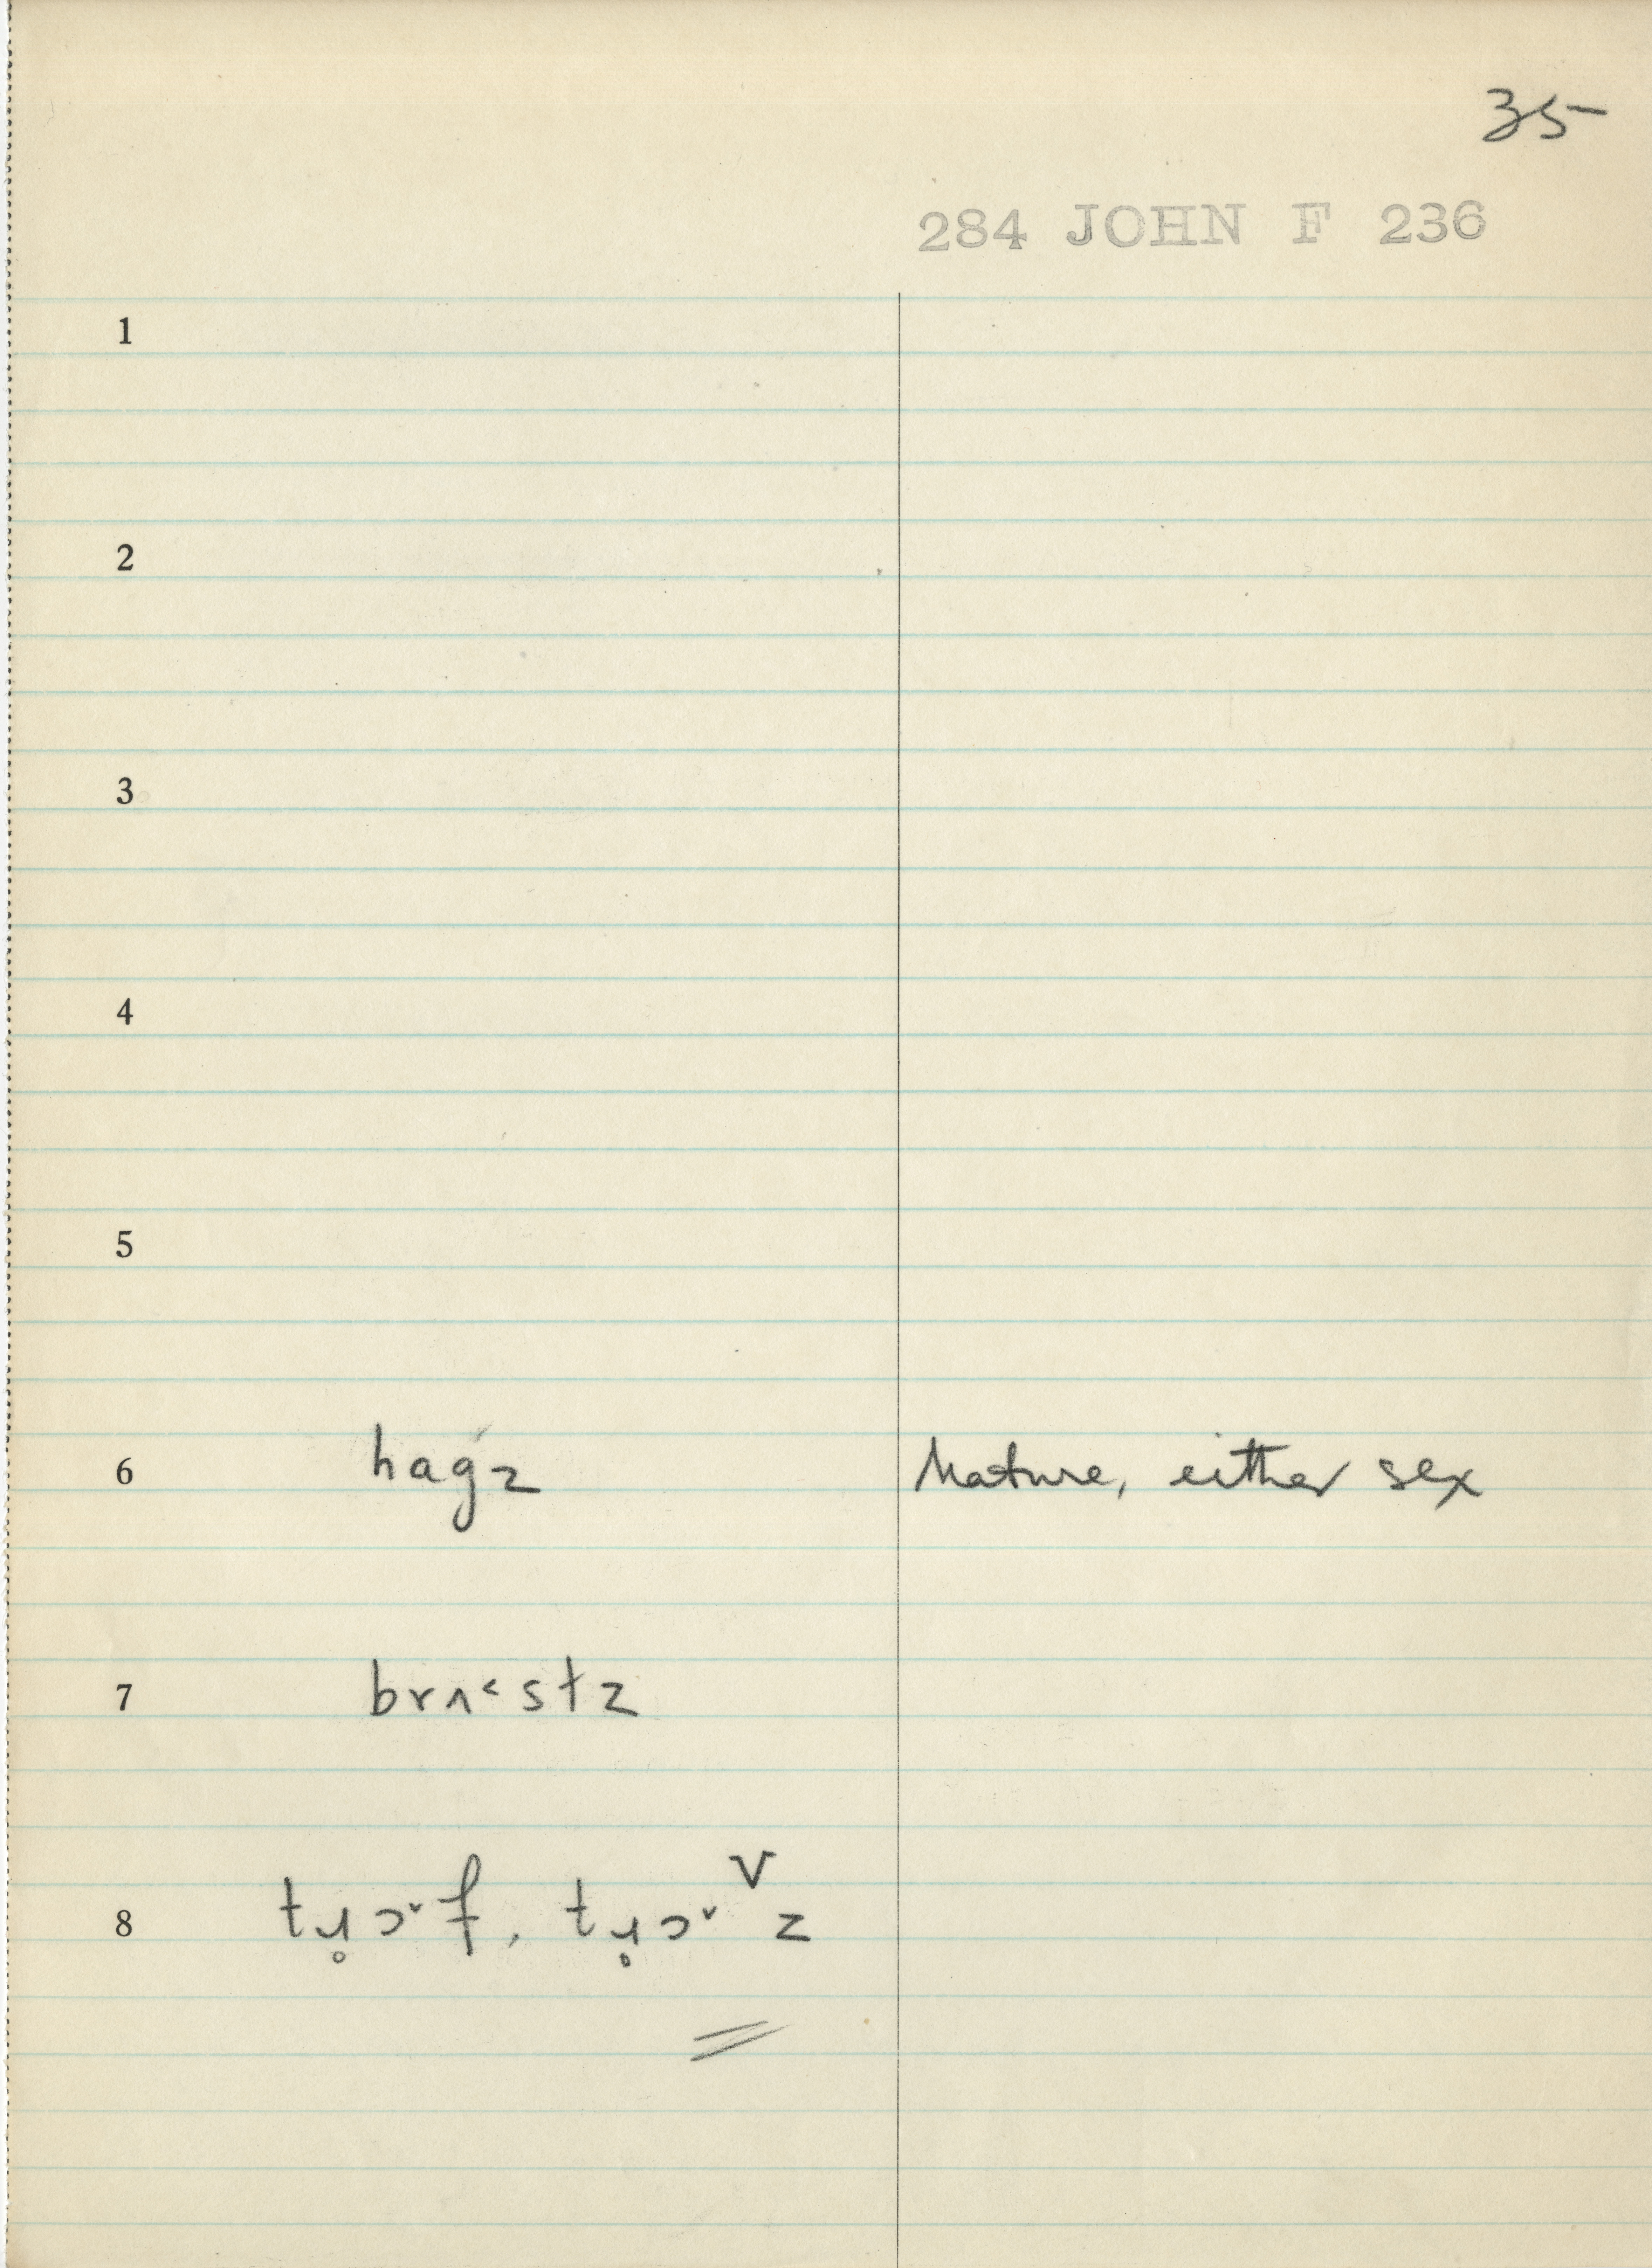 35
284 JOHN F 236
1
2
3
4
5
6 hagz Mature, either sex
7 brʌ˂stz
8